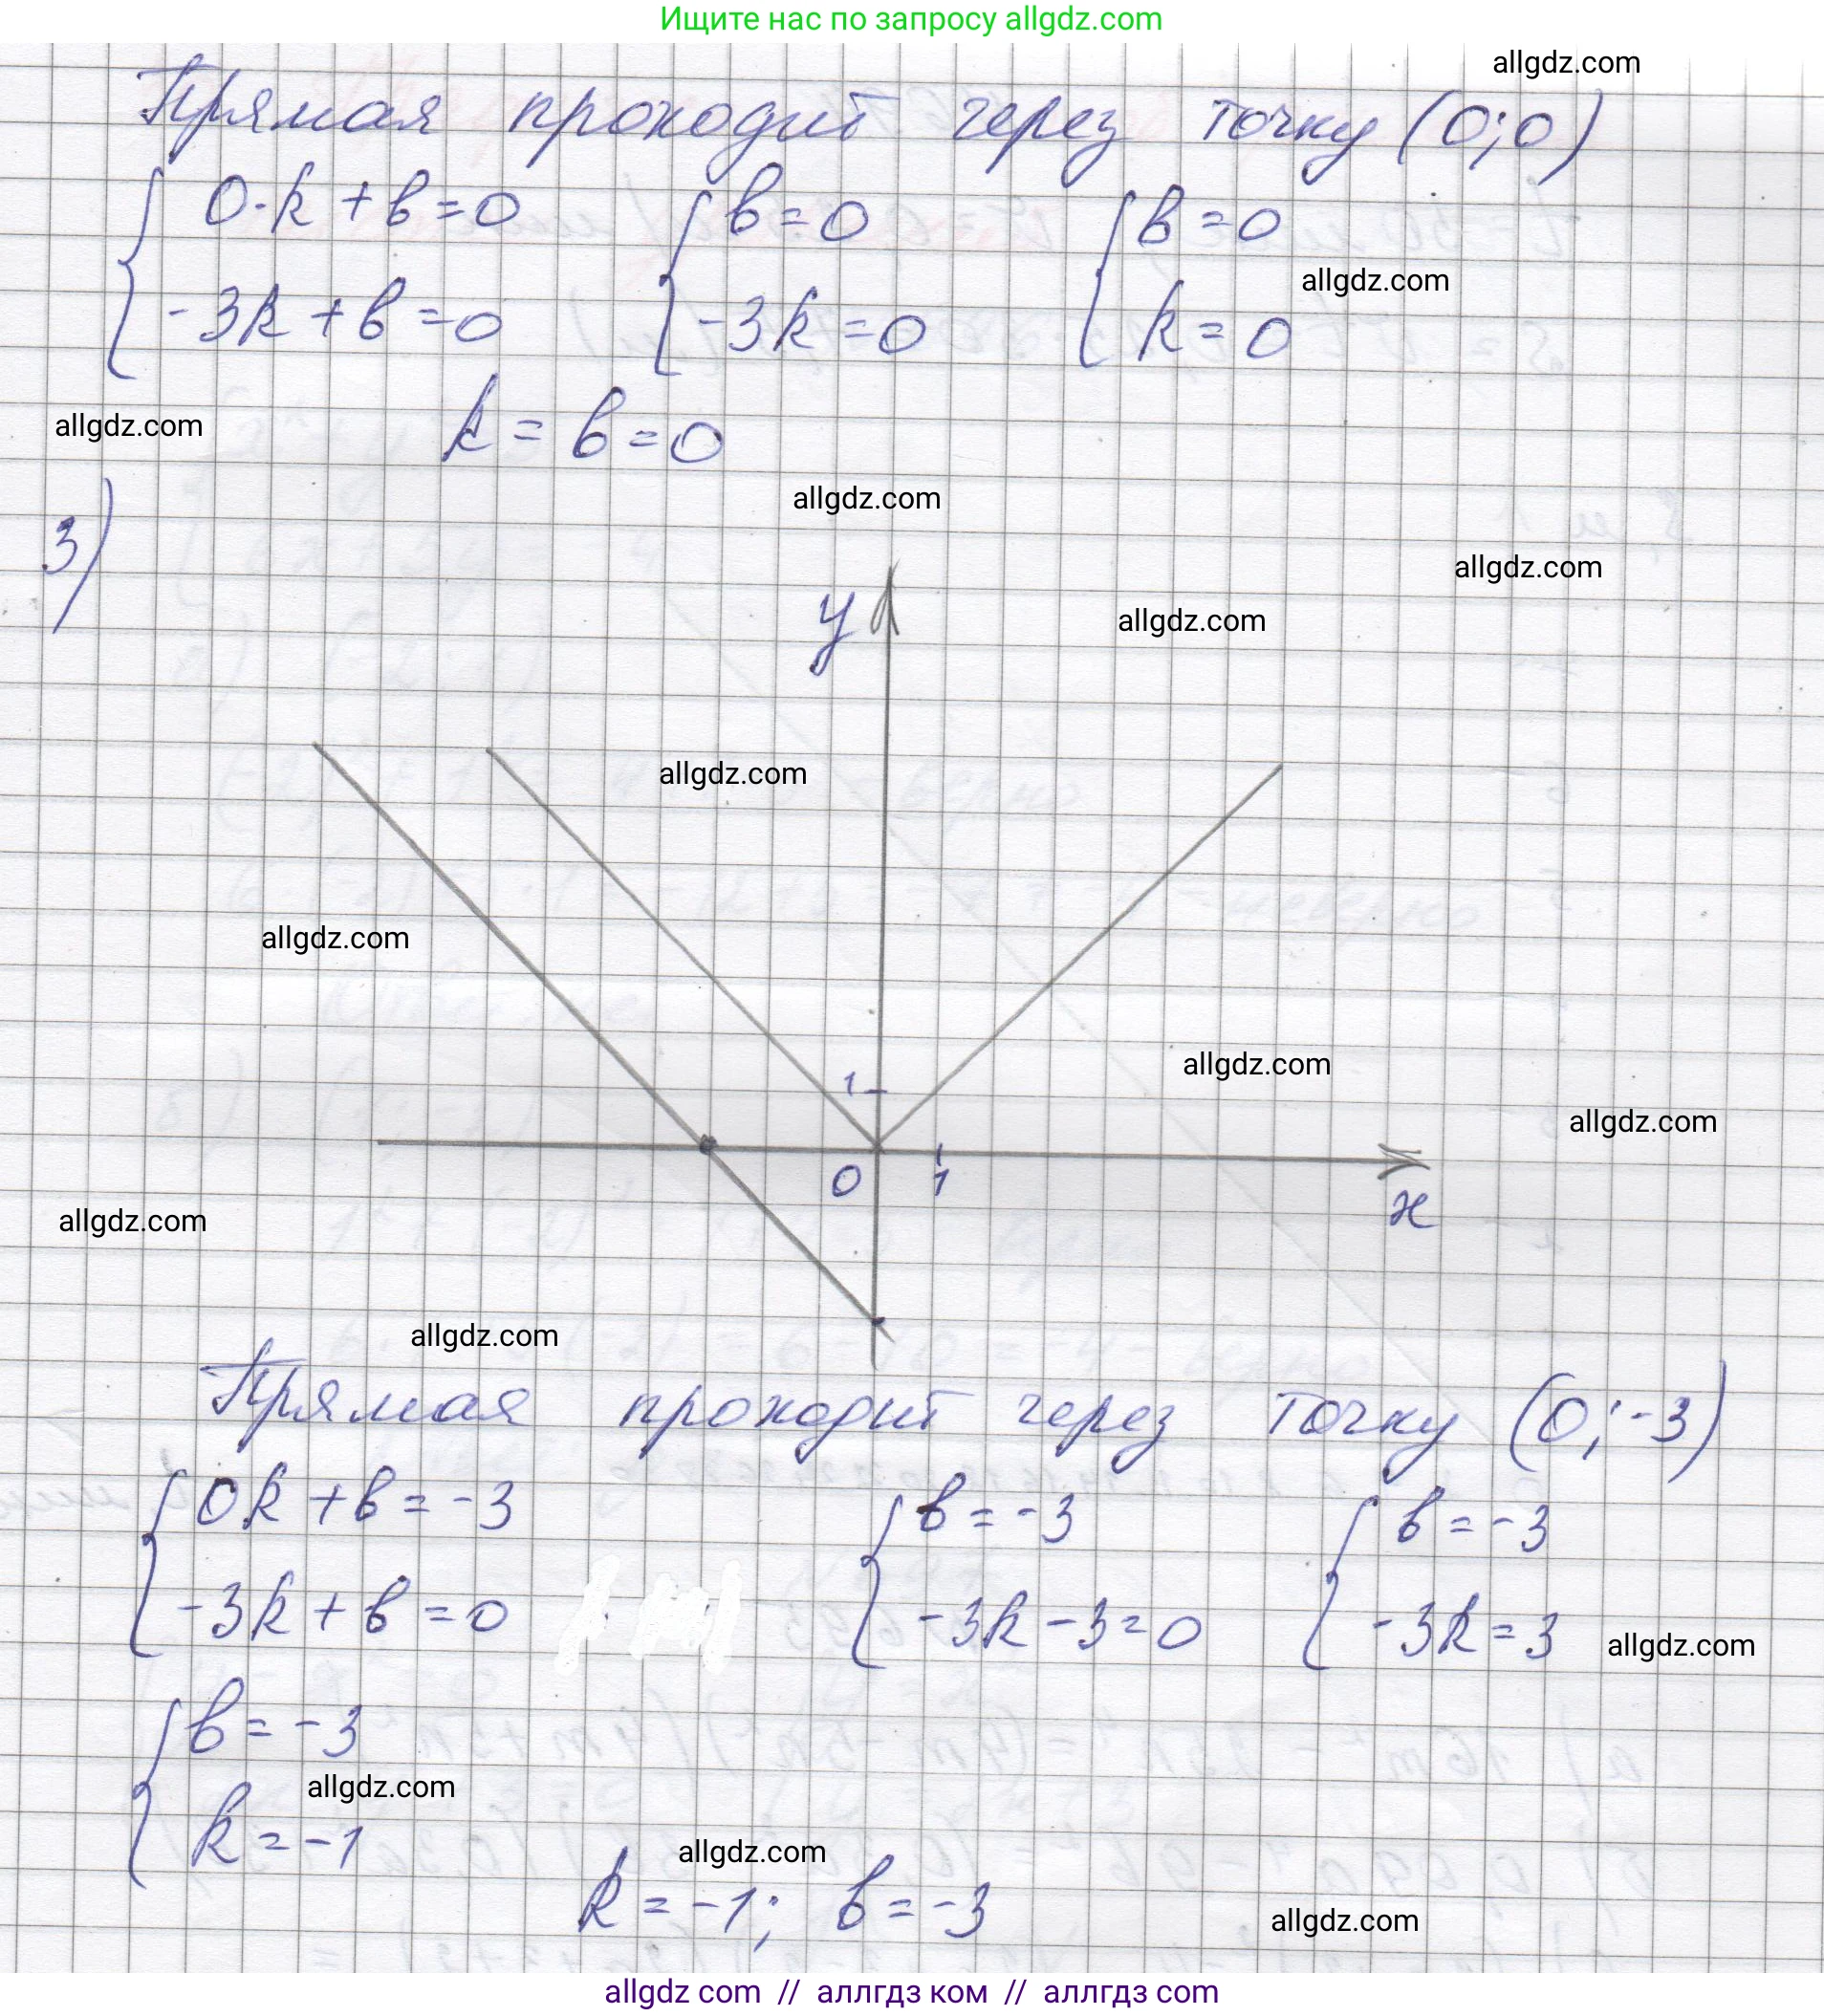 Ищите нас по запросу allgdz.com
allgdz.com
Прямая проходит через точку (0;0)
0·k+b=0 b=0 b=0
allgdz.com
-3k+b=0 -3k=0 k=0
allgdz.com
k=b=0
allgdz.com
3)
allgdz.com
y
allgdz.com
allgdz.com
allgdz.com
allgdz.com
1
allgdz.com
0 1
x
allgdz.com
allgdz.com
Прямая проходит через точку (0;-3)
0k+b=-3 b=-3 b=-3
-3k+b=0 -3k-3=0 -3k=3
allgdz.com
b=-3
allgdz.com
k=-1
allgdz.com
k=-1; b=-3
allgdz.com
allgdz com // аллгдз ком // аллгдз com